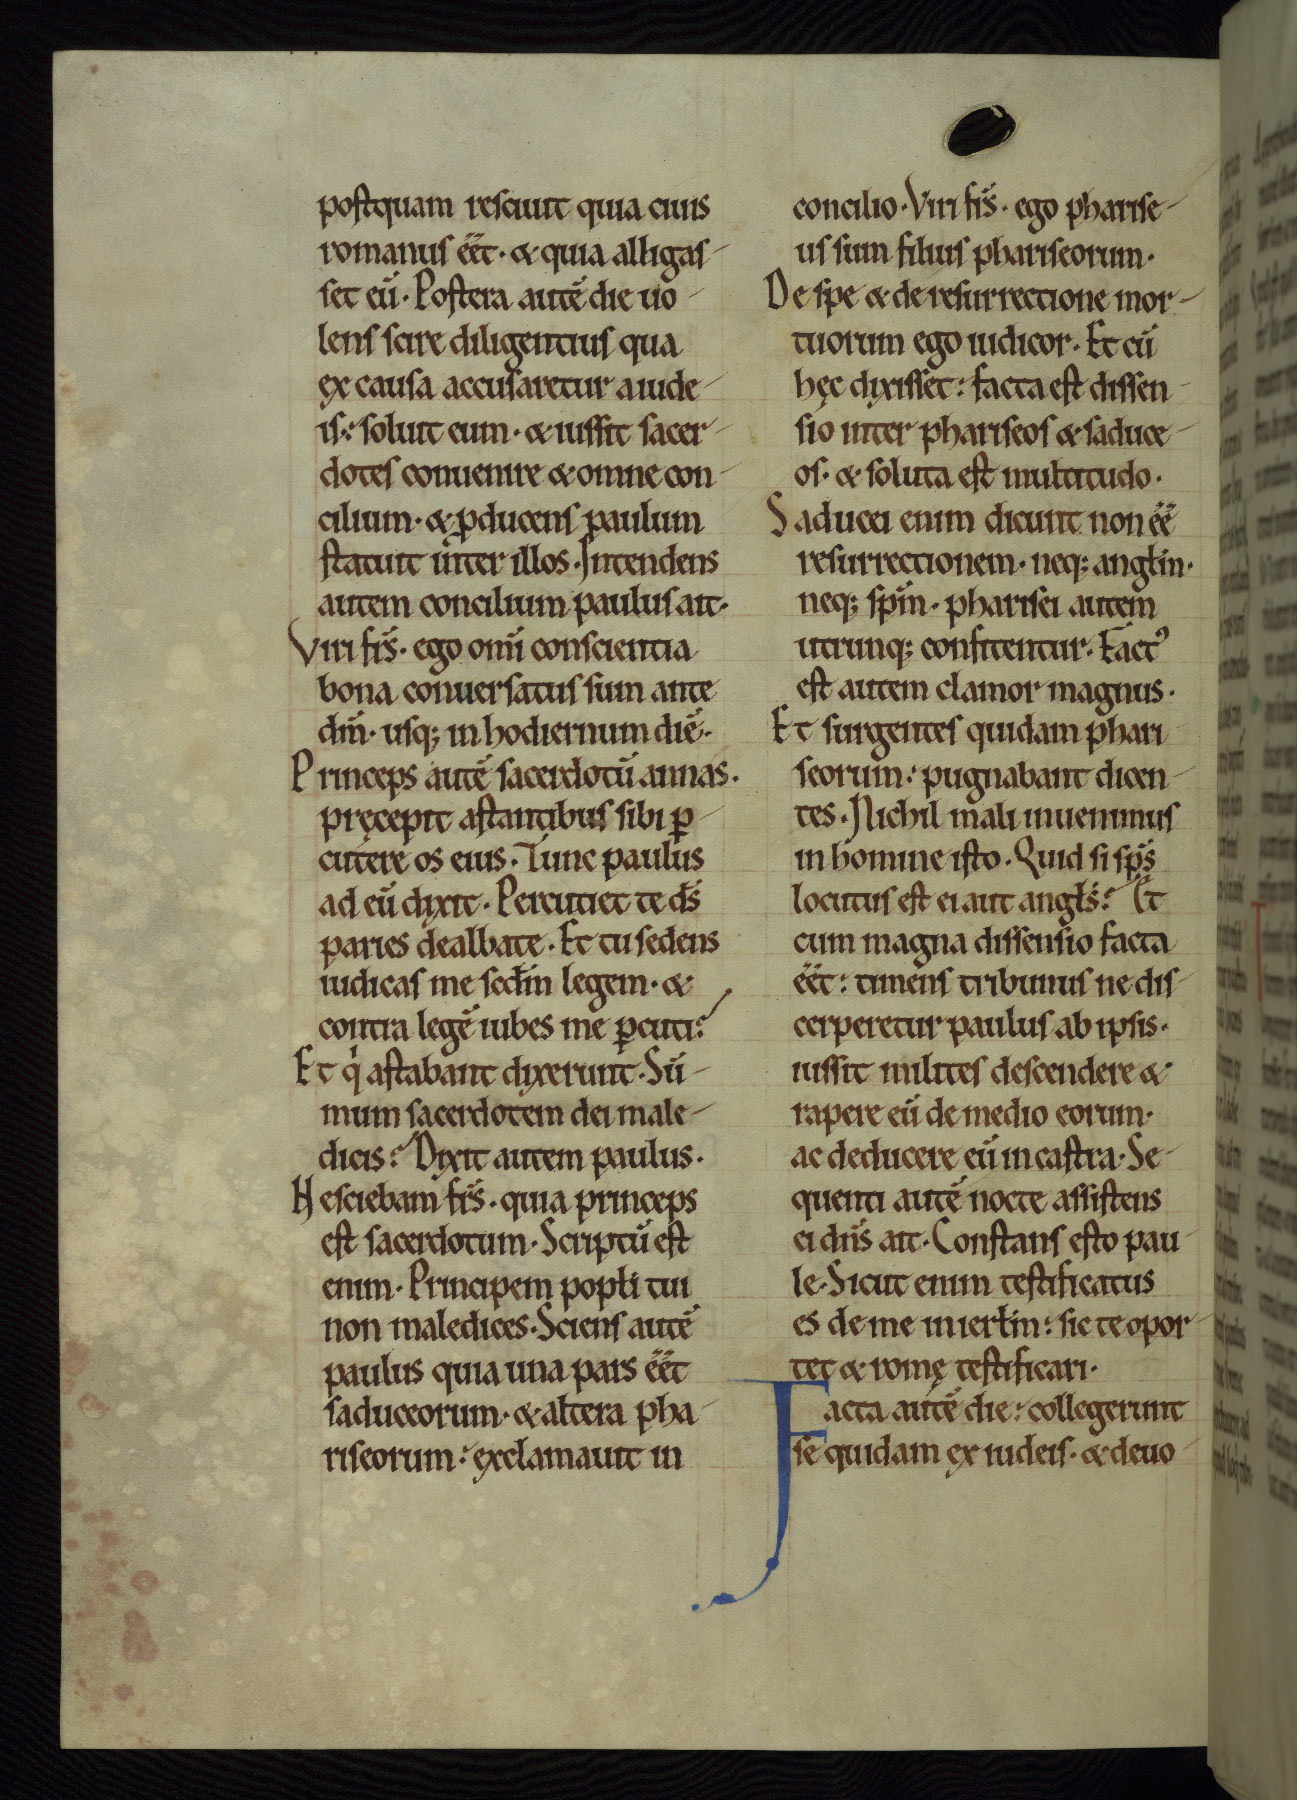 postquam resciuit quia ciuis
romanus eēt · & quia alligas-
set eū · Postera autē die uo-
lens scire diligentius qua
ex causa accusaretur a iude-
is: soluit eum · & iussit sacer-
dotes conuenire & omne con-
cilium · & ꝓducens paulum
statuit inter illos · Intendens
autem concilium paulus ait ·
Viri frs̄ · ego omī conscientia
bona conuersatus sum ante
dm̄ · usq; in hodiernum diē ·
Princeps autē sacerdotū annas ·
pręcepit astantibus sibi ꝑ-
cutere os eius · Tunc paulus
ad eū dixit · Percutiet te ds̄
paries dealbate · Et tu sedens
iudicas me sedm̄ legem · &
contra legē iubes me ꝑcuti?
Et qͥ astabant dixerunt · Sū-
mum sacerdotem dei male-
dicis? Dixit autem paulus ·
Nesciebam frs̄ · quia princeps
est sacerdotum · Scriptū est
enim · Principem popłi tui
non maledices · Sciens autē
paulus quia una pars eēt
saduceorum · & altera pha-
riseorum: exclamauit in
concilio · Viri frs̄ · ego pharise-
us sum filius phariseorum ·
De spe & de resurrectione mor-
tuorum ego iudicor · Et cū
hęc dixisset: facta est dissen-
sio inter phariseos & saduce-
os · & soluta est multitudo ·
Saducei enim dicunt non eē
resurrectionem · neq; angłm ·
neq; spm̄ · pharisei autem
utrunq; confitentur · Factꝰ
est autem clamor magnus ·
Et surgentes quidam phari-
seorum: pugnabant dicen-
tes · Nichil mali inuenimus
in homine isto · Quid si sps̄
locutus est ei aut angłs? Et
cum magna dissensio facta
eēt: timens tribunus ne dis-
cerperetur paulus ab ipsis ·
iussit milites descendere &
rapere eū de medio eorum ·
ac deducere eū in castra · Se-
quenti autē nocte assistens
ei dns̄ ait · Constans esto pau-
le · Sicut enim testificatus
es de me in ierłm: sic te opor-
tet & romę testificari ·
Facta autē die: collegerunt
se quidam ex iudeis · & deuo-